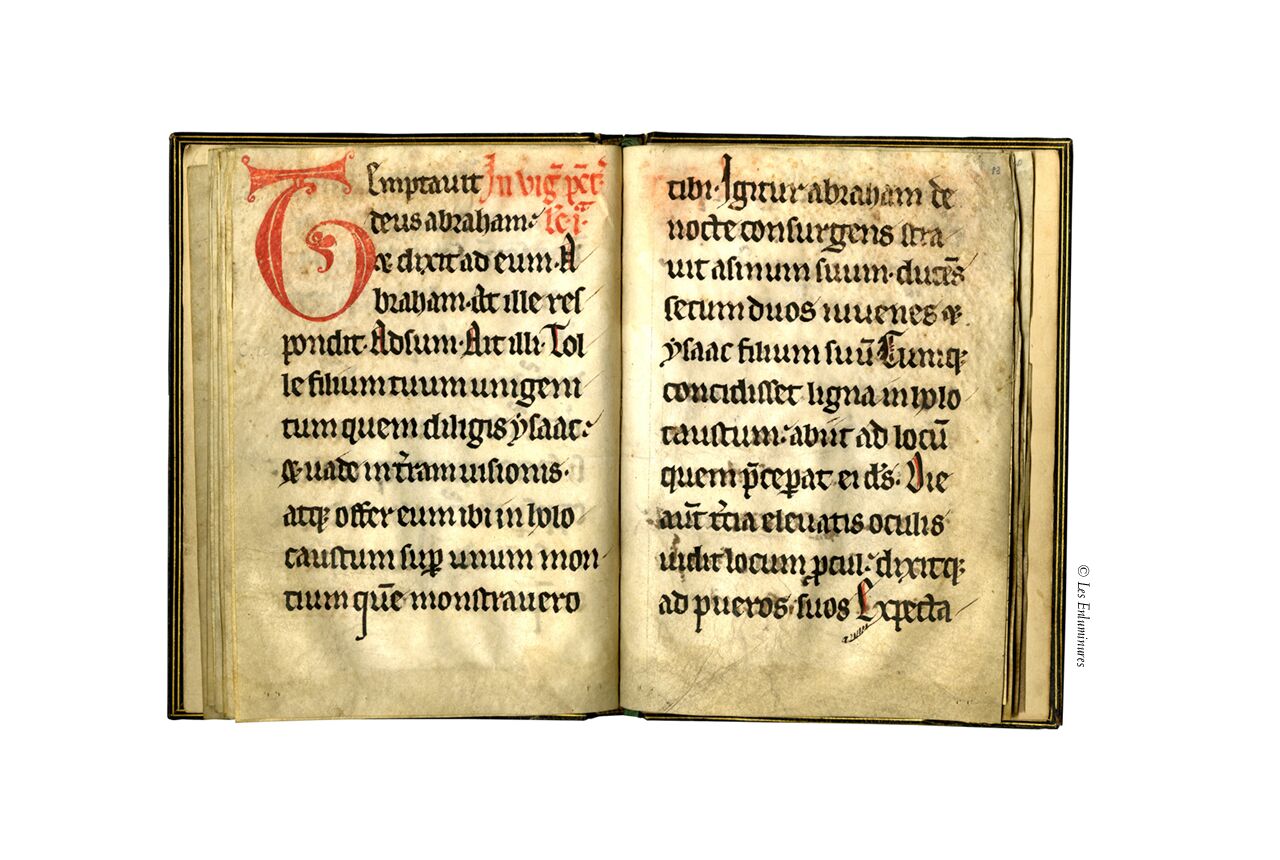 Temptauit In vig̃ pc̃t.
deus abraham: lc̃. i.
⁊ dixit ad eum. A
braham. At ille res
pondit. Adsum. Ait illi. Tol
le filium tuum unigeni
tum quem diligis ysaac:
⁊ uade in tr̃am uisionis.
atq; offer eum ibi in holo
caustum suꝑ unum mon
tium quẽ monstrauero
13
tibi. Igitur abraham de
nocte consurgens stra
uit asinum suum. ducẽs
secum duos iuuenes ⁊
ysaac filium suũ. Cumq;
concidisset ligna in holo
caustum: abiit ad locũ
quem p̃ceꝑat ei ds̃. Die
aut̃ tr̃cia eleuatis oculis
uidit locum ꝓcul: dixitq;
ad pueros suos Expecta
© Les Enluminures